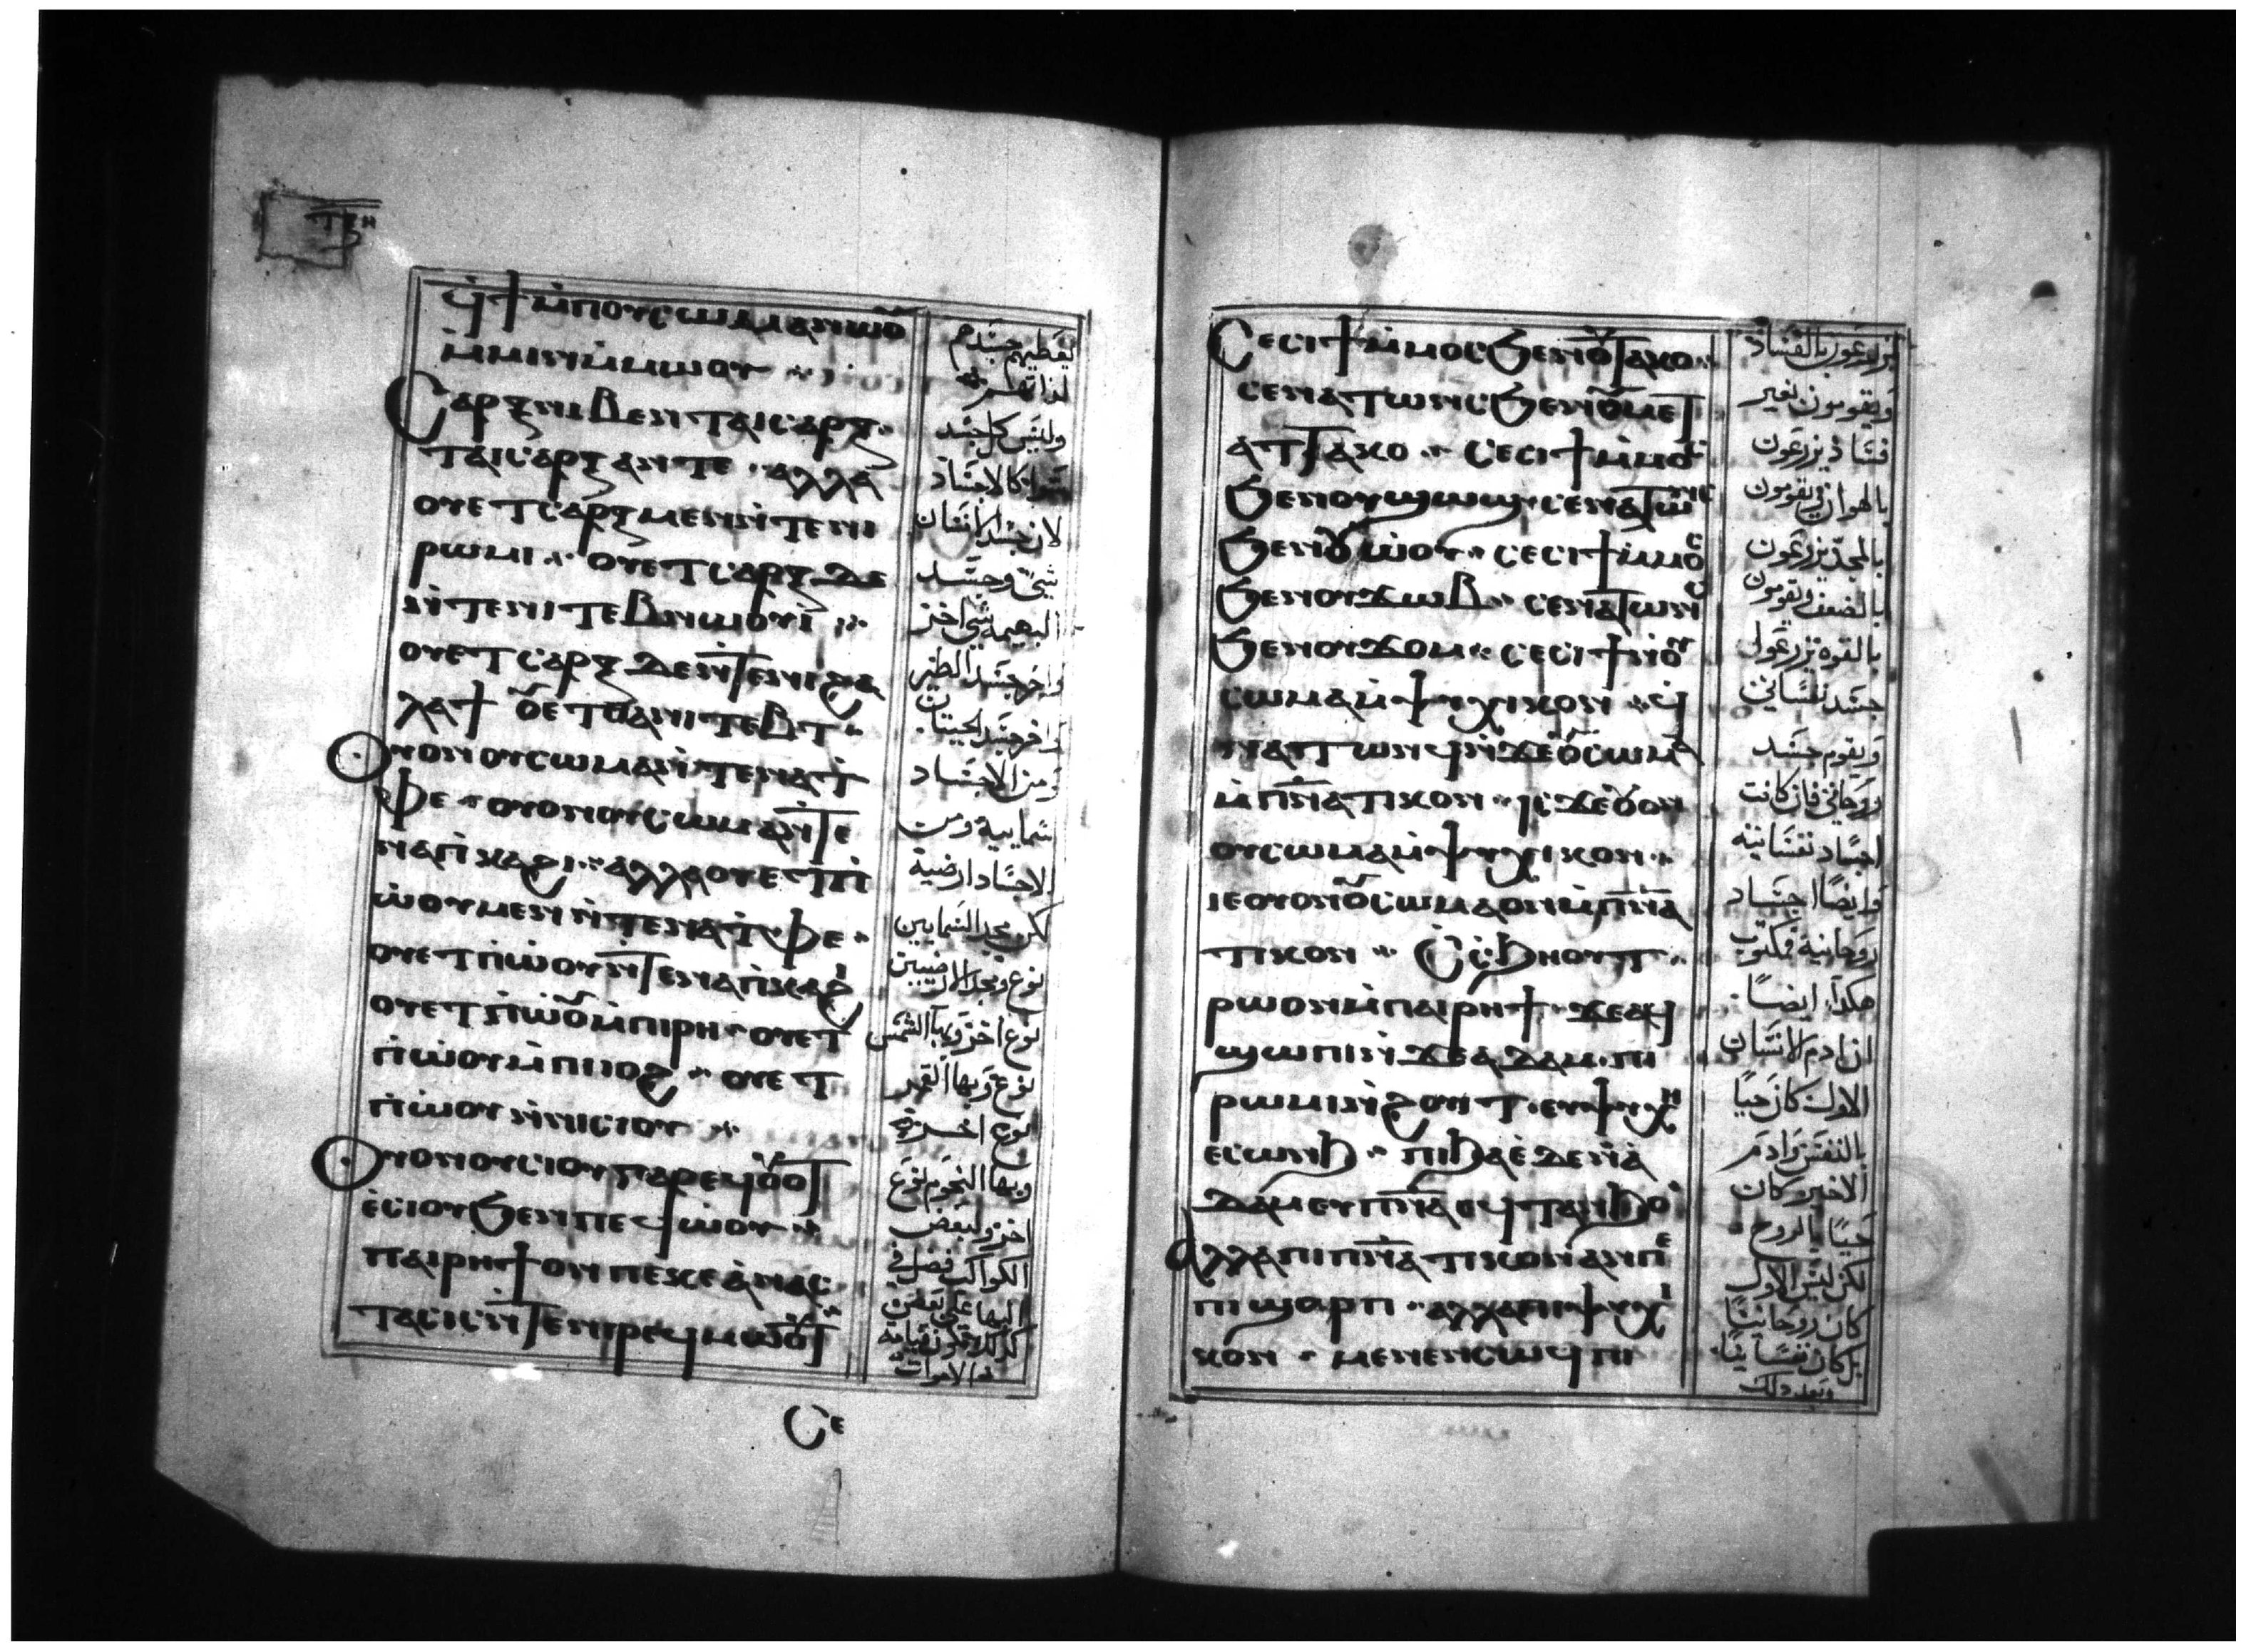 ϥϯ ⲙ̇ⲡⲟⲩⲥⲱⲙⲁ ⲁⲛ ⲙⲱⲟ̅ⲩ
ⲙ̇ⲙⲓⲛ ⲙ̇ⲙⲱⲟⲩ
ⲥⲁⲣⲝ ⲛⲓⲃⲉⲛ ⲧⲁⲓⲥⲁⲣⲝ
ⲧⲁⲓⲥⲁⲣⲝ ⲁⲛ ⲧⲉ ⲁⲗⲗⲁ
ⲟⲩⲉⲧ ⲥⲁⲣⲝ ⲙⲉⲛ ⲛ̇ⲧⲉ ⲛⲓ
ⲣⲱⲙⲓ ⲟⲩⲉⲧ ⲥⲁⲣⲝ ⲇⲉ
ⲛ̇ⲧⲉ ⲛⲓⲧⲉⲃⲛⲱⲟⲩⲓ
ⲟⲩⲉⲧ ⲥⲁⲣⲝ ⲇⲉ ⲛ̇ⲧⲉ ⲛⲓϩⲁ
ⲗⲁϯ ⲟⲩⲉⲧ ⲑⲁ ⲛⲓⲧⲉⲃⲧ
ⲟⲩⲟⲛ ⲟⲩⲥⲱⲙⲁ ⲛ̇ⲧⲉ ⲛⲁⲧ̇
ⲫⲉ ⲟⲩⲟⲛ ⲟⲩⲥⲱⲙⲁ ⲛ̇ⲧⲉ
ⲛⲁⲡ̇ⲕⲁϩⲓ ⲁⲗⲗⲁ ⲟⲩⲉⲧ ⲡ̇
ⲱ̇ⲟⲩ ⲙⲉⲛ ⲛ̇ⲧⲉ ⲛⲁⲧ̇ⲫⲉ
ⲟⲩⲉⲧ ⲡ̇ⲱ̇ⲟⲩ ⲛ̇ⲧⲉ ⲛⲁⲡ̇ⲕⲁϩⲓ
ⲟⲩⲉⲧ ⲡ̇ⲱ̇ⲟⲩ ⲙ̇ⲡⲓⲣⲏ ⲟⲩⲉⲧ
ⲡ̇ⲱ̇ⲟⲩ ⲙ̇ⲡⲓⲓⲟϩ ⲟⲩⲉⲧ
ⲡ̇ⲱ̇ⲟⲩ ⲛ̇ⲛⲓⲥⲓⲟⲩ
ⲟⲩⲟⲛ ⲟⲩⲥⲓⲟⲩ ⲅⲁⲣ ⲉϥⲟⲩⲟⲧ
ⲉ̇ⲥⲓⲟⲩ ϧⲉⲛ ⲡⲉϥⲱ̇ⲟⲩ
ⲡⲁⲓⲣⲏϯ ⲟⲛ ⲡⲉ ⲕⲉⲁ̇ⲛⲁⲥ
ⲧⲁⲥⲓⲥ ⲛ̇ⲧⲉ ⲛⲓⲣⲉϥⲙⲱⲟⲩⲧ
ⲥⲉ
وليس كل جسد
لان جسد الانسان
شي وجسد
البهيمة شي اخر
واخر جسد الطير
واخر جسد الحيتان
ومن الاجساد
سمايية ومن
الاجساد ارضية
لكن مجد السمايين
نوع ومجد الارضيين
نوع اخر وبها الشمس
نوع وبها القمر
نوع اخر
وبها النجوم نوع
اخر ولبعض
الكواكب فضل في
البها على بعض
كذلك تكون قيامة
الاموات
ⲥⲉⲥⲓϯ ⲙ̇ⲙⲟⲥ ϧⲉⲛ ⲟⲩⲧⲁⲕⲟ
ⲥⲉⲛⲁⲧⲱⲛⲥ ϧⲉⲛ ⲟⲩⲙⲉⲧ
ⲁⲧⲧⲁⲕⲟ ⲥⲉⲥⲓϯ ⲙ̇ⲙⲟⲥ
ϧⲉⲛ ⲟⲩϣⲱϣ ⲥⲉⲛⲁⲧⲱⲛⲥ
ϧⲉⲛ ⲟⲩⲱ̇ⲟⲩ ⲥⲉⲥⲓϯ ⲙ̇ⲙⲟⲥ
ϧⲉⲛ ⲟⲩϫⲱⲃ ⲥⲉⲛⲁⲧⲱⲛⲥ
ϧⲉⲛ ⲟⲩϫⲟⲙ ⲥⲉⲥⲓϯ ⲛ̇ⲟⲩ
ⲥⲱⲙⲁ ⲙ̇ⲯⲩⲭⲓⲕⲟⲛ ϥ
ⲛⲁⲧⲱⲛϥ ⲛ̇ϫⲉ ⲟⲩⲥⲱⲙⲁ
ⲙ̇ⲡ̅ⲛ̅ⲁ̅ⲧⲓⲕⲟⲛ ⲓⲥϫⲉ ⲟⲩⲟⲛ
ⲟⲩⲥⲱⲙⲁ ⲙ̇ⲯⲩⲭⲓⲕⲟⲛ
ⲓⲉ ⲟⲩⲟⲛ ⲟⲩⲥⲱⲙⲁ ⲟⲛ ⲙ̇ⲡ̅ⲛ̅ⲁ̅
ⲧⲓⲕⲟⲛ ⲥ̇ⲥ̇ϧⲏⲟⲩⲧ
ⲣⲱ ⲟⲛ ⲙ̇ⲡⲁⲓⲣⲏϯ ϫⲉ ⲁϥ
ϣⲱⲡⲓ ⲛ̇ϫⲉ ⲁⲇⲁⲙ ⲡⲓ
ⲣⲱⲙⲓ ⲛ̇ϩⲟⲩⲓⲧ ⲉⲩⲯⲩⲭⲏ
ⲉⲥⲱⲛϧ ⲡⲓϧⲁⲉ̇ ⲇⲉ ⲛ̇ⲁ̇
ⲇⲁⲙ ⲉⲩⲡ̅ⲛ̅ⲁ̅ ⲉϥⲧⲁⲛϧⲟ
ⲁⲗⲗⲁ ⲡⲓⲡ̅ⲛ̅ⲁ̅ⲧⲓⲕⲟⲛ ⲁⲛ ⲡⲉ
ⲡⲓϣⲟⲣⲡ ⲁⲗⲗⲁ ⲡⲓⲯⲩⲭⲓ
ⲕⲟⲛ ⲙⲉⲛⲉⲛⲥⲱϥ ⲡⲓ
يزرعون بالفساد
ويقومون بغير
فساد يزرعون
بالهوان ويقومون
بالمجد يزرعون
بالضعف ويقومون
بالقوة يزرعون
جسد نفساني
ويقوم جسد
روحاني فان كانت
اجساد نفسانية
وايضا اجساد
روحانية فمكتوب
هكذا ايضا
ان ادم الانسان
الاول كان حيا
بالنفس وادم
الاخير كان
حيا بالروح
لكن ليس الاول
كان روحانيا
بل كان نفسانيا
وبعد ذلك